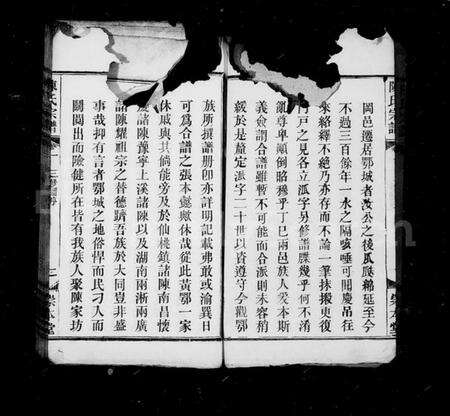 陳氏宗譜
岡邑遷居鄂城者汝公之後風度綿延至今
不過三百餘年一水之隔咳唾可聞慶吊往
來絡繹不絶乃亦存而不論一筆抹摋更復
門戶之見各立派字另修牒幾乎何不淆
亂尊卑顛倒穆乎丁巳兩邑族人爰本斯
義僉謂合譜雖暫不可能面合派則未容稍
緩於是釐定派字二十世以昔遵守今觀鄂
族所撰譜册卽亦詳明記載弗敢或渝異日
可為合譜之張本歟休哉從此黃鄂一家
休戚與共倘能旁及於仙桃鎮諸陳南昌懷
慶諸陳豫寧上溪諸陳以及湖南兩淅兩廣
諸陳耀祖宗之德躋吾族於大同豈非盛
事哉抑有言者鄂城之地俗悍而民刁入而
鬩出而險健所在皆有我族人聚陳家坊
陳氏宗譜
崇本堂